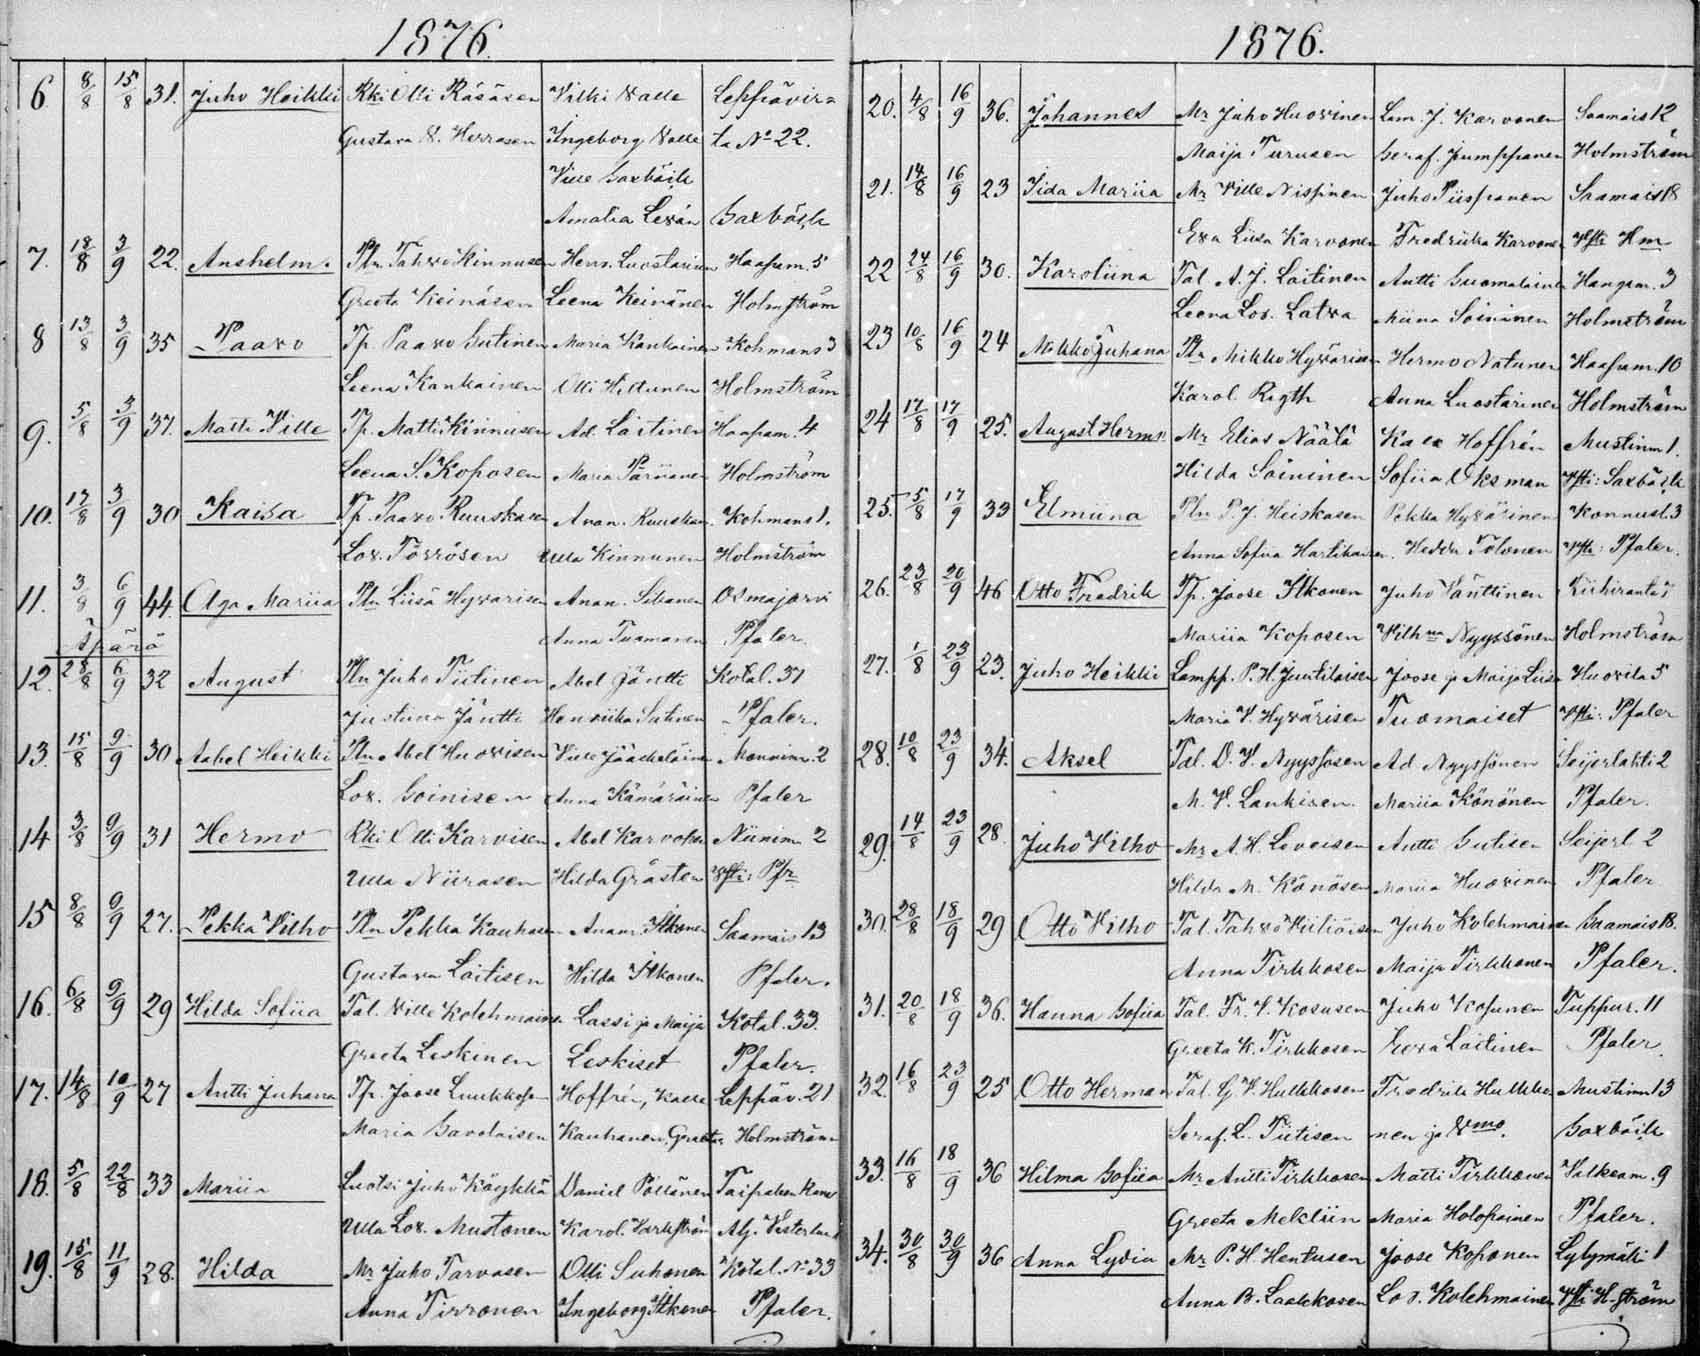 1876.
6 8/8 15/8 31. Juho Heikki Rki Olli Räsäsen Vilki Valle Leppävir=
Gustava V. Herrasen Ingeborg Valle ta No 22.
Ville Saxbäck
Amalia Lexán Saxbäck
7. 18/8 3/9 22. Anshelm. Ptn Tahvo Kinnusen Herm. Luostarinen Haapam. 5
Greeta Keinäsen Leena Keinänen Holmström
8 13/8 3/9 35 Paavo Tp. Paavo Sutinen Maria Kankainen Kohmans 3
Leena Kankainen Olli Hiltunen Holmström
9. 5/8 3/9 37. Matti Ville Tp. Matti Kinnusen Ad. Laitinen Haapam. 4
Leena S. Koposen Maria Holmström
10. 17/8 3/9 30 Kaisa Tp. Paavo Ruuskasen Anan. Ruuskan. Kohmans 1.
Lov. Törrösen Ulla Kinnunen Holmström
11. 3/8 6/9 44. Olga Mariia Ptn Liisa Hyvärisen Anan. Osmajärvi
Äpärä Anna Tuomanen Pfaler
12. 28/8 6/9 32 August Ptn Juho Tiitinen Abel Jäntti Kotal. 37
Justiina Jäntti Henriika Sutinen Pfaler.
13. 15/8 9/9 30 Aabel Heikki Ptn Abel Huovisen Ville Jääskeläinen Manninm. 2
Lov. Soinisen Anna Kämäräinen Pfaler
14 3/8 9/9 31 Hermo Rki Olli Karvisen Abel Karvonen Niinim 2
Ulla Niirasen Hilda Gråsten Vsti: Pfr
15 8/8 9/9 27. Pekka Vilho Ptn Pekka Kauhasen Anan. Itkonen Saamais 13
Gustava Laitisen Hilda Itkonen Pfaler.
16. 6/8 9/9 29 Hilda Sofiia Tal. Ville Kolehmainen Lassi ja Maija Kotal. 33.
Greeta Leskinen Leskiset Pfaler.
17. 14/8 10/9 27 Antti Juhana Tp. Joose Luukkosen Hoffrén, Kalle Leppäv. 21
Maria Savolaisen Kauhanen, Greeta Holmström
18. 5/8 22/8 33 Mariia Luotsi Juho Käykkä Daniel Pöllänen Taipaleen Kana
Ulla Lov. Mustonen Karol. Varkström Apj. Vesterlund
19. 15/8 11/9 28. Hilda Mr Juho Tarvasen Olli Suhonen Kotal. No 33
Anna Tirronen Ingeborg Itkonen Pfaler.
1876.
20. 4/8 16/9 36. Johannes Mr Juho Huovinen Lam. J. Karvonen Saamais 12
Maija Turusen Seraf. Jumppanen Holmström
21. 14/8 16/9 23 Iida Mariia Mr Ville Nissinen Juho Piispanen Saamais 18
Eva Liisa Karvonen Fredrika Karvonen Vsti Hm
22 24/8 16/9 30. Karoliina Tal. A. J. Laitinen Antti Suomalainen Hangam. 3
Leena Lov. Latva Miina Soininen Holmström
23 10/8 16/9 24 Mikko Juhana Ptn Mikko Hyvärisen Hermo Natunen Haapam. 10
Karol. Rigth Anna Luostarinen Holmström
24 17/8 17/9 25. August Herman Mr Elias Näätä Kalle Hoffrén Mustinm 1.
Hilda Soininen Sofiia Oksman Vsti: Saxbäck
25. 5/8 17/9 33 Elmiina Ptn P. J. Heiskasen Pekka Hyvärinen Konnusl. 3
Anna Sofiia Hartikaisen. Hedda Tolonen Vsti: Pfaler.
26. 23/8 20/9 46 Otto Fredrik Tp. Joose Itkonen Juho Vänttinen
Mariia Koposen Vilhna Nyyssönen Holmström
27. 1/8 23/9 23. Juho Heikki Lampp. P. H. Juutilaisen Joose ja Maija Liisa Huovila 5
Maria V. Hyvärisen Tuomaiset Vsti: Pfaler
28. 10/8 23/9 34. Aksel Tal. D. V. Nyyssösen Ad. Nyyssönen Seijerlahti 2
M. V. Lankisen. Mariia Könönen Pfaler.
29. 14/8 23/9 28. Juho Vilho Mr A. H. Loveisen Antti Sutisen Seijerl 2
Hilda M. Könösen Mariia Huovinen Pfaler
30. 28/8 18/9 29 Otto Vilho Tal. Tahvo Juho Kolehmainen Saamais 18.
Anna Tirkkosen Maija Tirkkonen Pfaler.
31. 20/8 18/9 36. Hanna Sofiia Tal. Fr. V. Kosusen Juho Kosunen Tuppur. 11
Greeta K. Tirkkosen Eeva Laitinen Pfaler.
32. 16/8 23/9 25 Otto Herman Tal. G. V. Hulkkosen Fredrik Hulkko Mustinm 13
Seraf. L. Tiitisen nen ja Vmo. Saxbäck
33. 16/8 18/9 36 Hilma Sofiia Mr Antti Tirkkosen Matti Tirkkonen Valkeam. 9
Greeta Meklin Maria Holopainen Pfaler.
34. 30/8 30/9 36 Anna Lydia Mr P. H. Hentusen Joose Koponen Lylymäki 1
Anna B. Laakkosen Lov. Kolehmainen Vsti H.ström